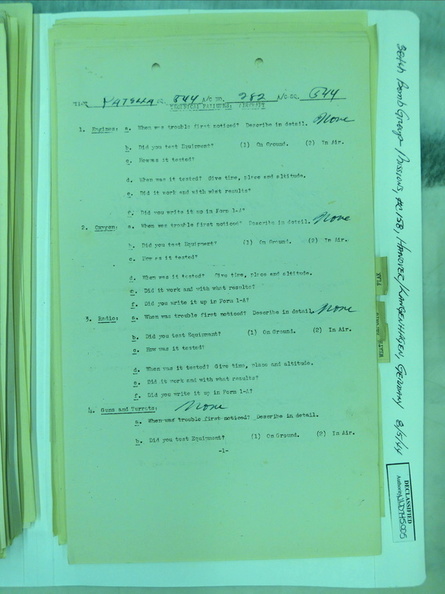 A/C NO. 282 A/C LTR. 544
1. Engines: a. When was trouble first noticed? Describe in detail. None
b. Did you test Equipment? (1) On Ground. (2) In Air.
c. How was it tested?
d. When was it tested? Give time, place and altitude.
e. Did it work and with what results?
f. Did you write it up in Form 1-A?
2. Oxygen: a. When was trouble first noticed? Describe in detail. None
b. Did you test Equipment? (1) On Ground. (2) In Air.
c. How was it tested?
d. When was it tested? Give time, place and altitude.
e. Did it work and with what results?
f. Did you write it up in Form 1-A?
3. Radio: a. When was trouble first noticed? Describe in detail. None
b. Did you test Equipment? (1) On Ground. (2) In Air.
c. How was it tested?
d. When was it tested? Give time, place and altitude.
e. Did it work and with what results?
f. Did you write it up in Form 1-A?
4. Guns and Turrets: None
a. When was trouble first noticed? Describe in detail.
b. Did you test Equipment? (1) On Ground. (2) In Air.
-1-
Bomb Group Missions, Hanover/Langenhagen, Germany 8/5/44
DECLASSIFIED
Authority NND745005